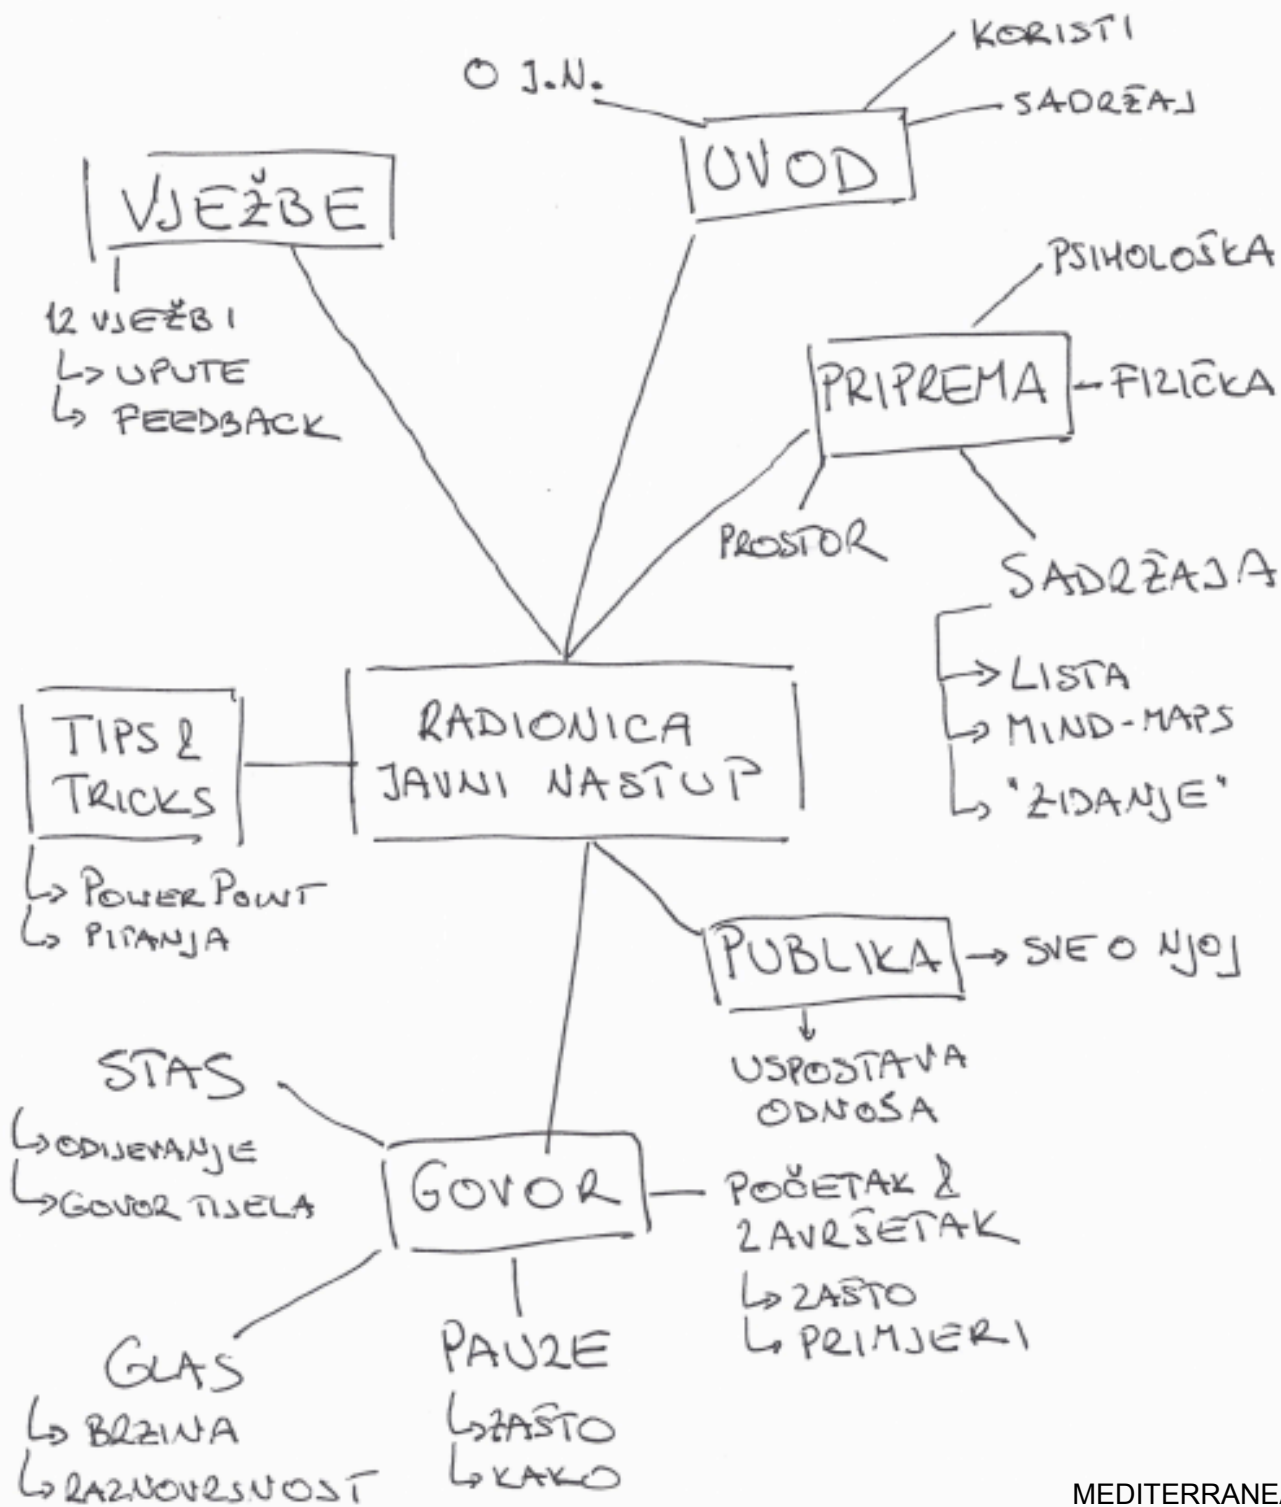 KORISTI
O J.N.
SADRŽAJ
UVOD
VJEŽBE
12 VJEŽBI
UPUTE
FEEDBACK
PSIHOLOŠKA
PRIPREMA
FIZIČKA
PROSTOR
SADRŽAJA
LISTA
MIND-MAPS
"ZIDANJE"
RADIONICA
JAVNI NASTUP
TIPS &
TRICKS
POWER POINT
PITANJA
PUBLIKA
SVE O NJOJ
USPOSTAVA
ODNOSA
STAS
ODIJEVANJE
GOVOR TIJELA
GOVOR
POČETAK &
ZAVRŠETAK
ZAŠTO
PRIMJERI
GLAS
BRZINA
RAZNOVRSNOST
PAUZE
ZAŠTO
KAKO
MEDITERRANEA